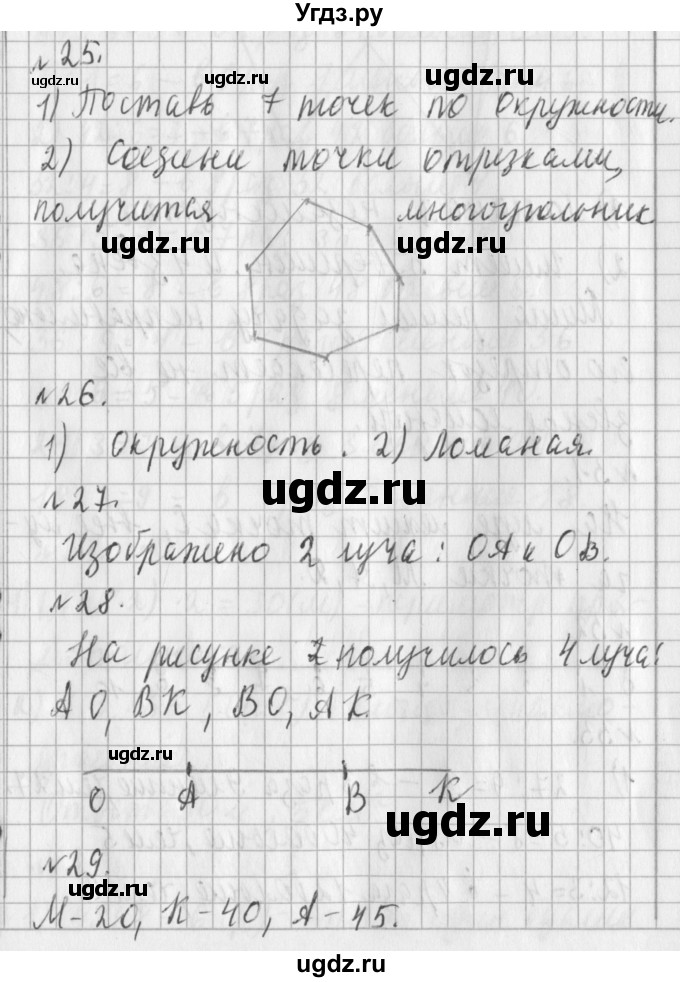 Угдз.ру
№25.
1) Поставь 7 точек по окружности.
2) Соедини точки отрезками,
получится многоугольник
№26.
1) Окружность. 2) Ломаная.
№27.
Изображено 2 луча: ОА и ОВ.
№28.
На рисунке 2 получилось 4 луча:
АО, ВК, ВО, АК.
О А В К
№29.
М-20, К-40, А-45.
ugdz.ru
ugdz.ru
ugdz.ru
ugdz.ru
ugdz.ru
ugdz.ru
ugdz.ru
ugdz.ru
ugdz.ru
ugdz.ru